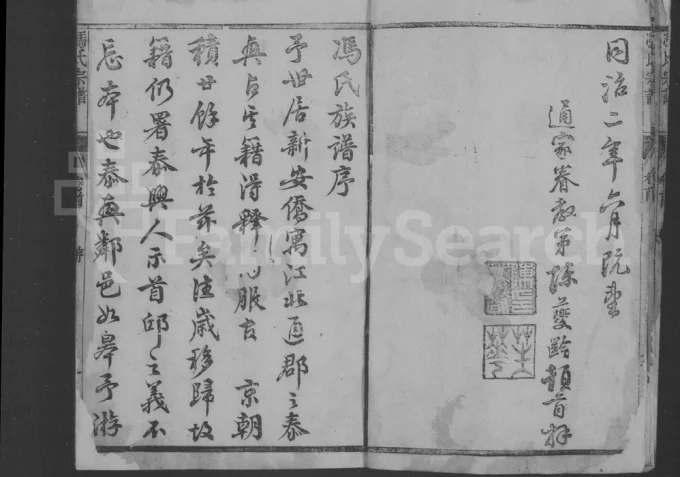 同治二年六月既望
通家眷教弟陳夔齡頓首拜
馮氏族譜序
予世居新安僑寓江北通郡之泰
興占其籍得釋心服官京朝
積廿餘年於茲矣往歲移歸故
籍仍署泰興人示首邱之義不
忘本也泰興鄰邑如皋予游
馮氏宗譜
卷首
序
FamilySearch